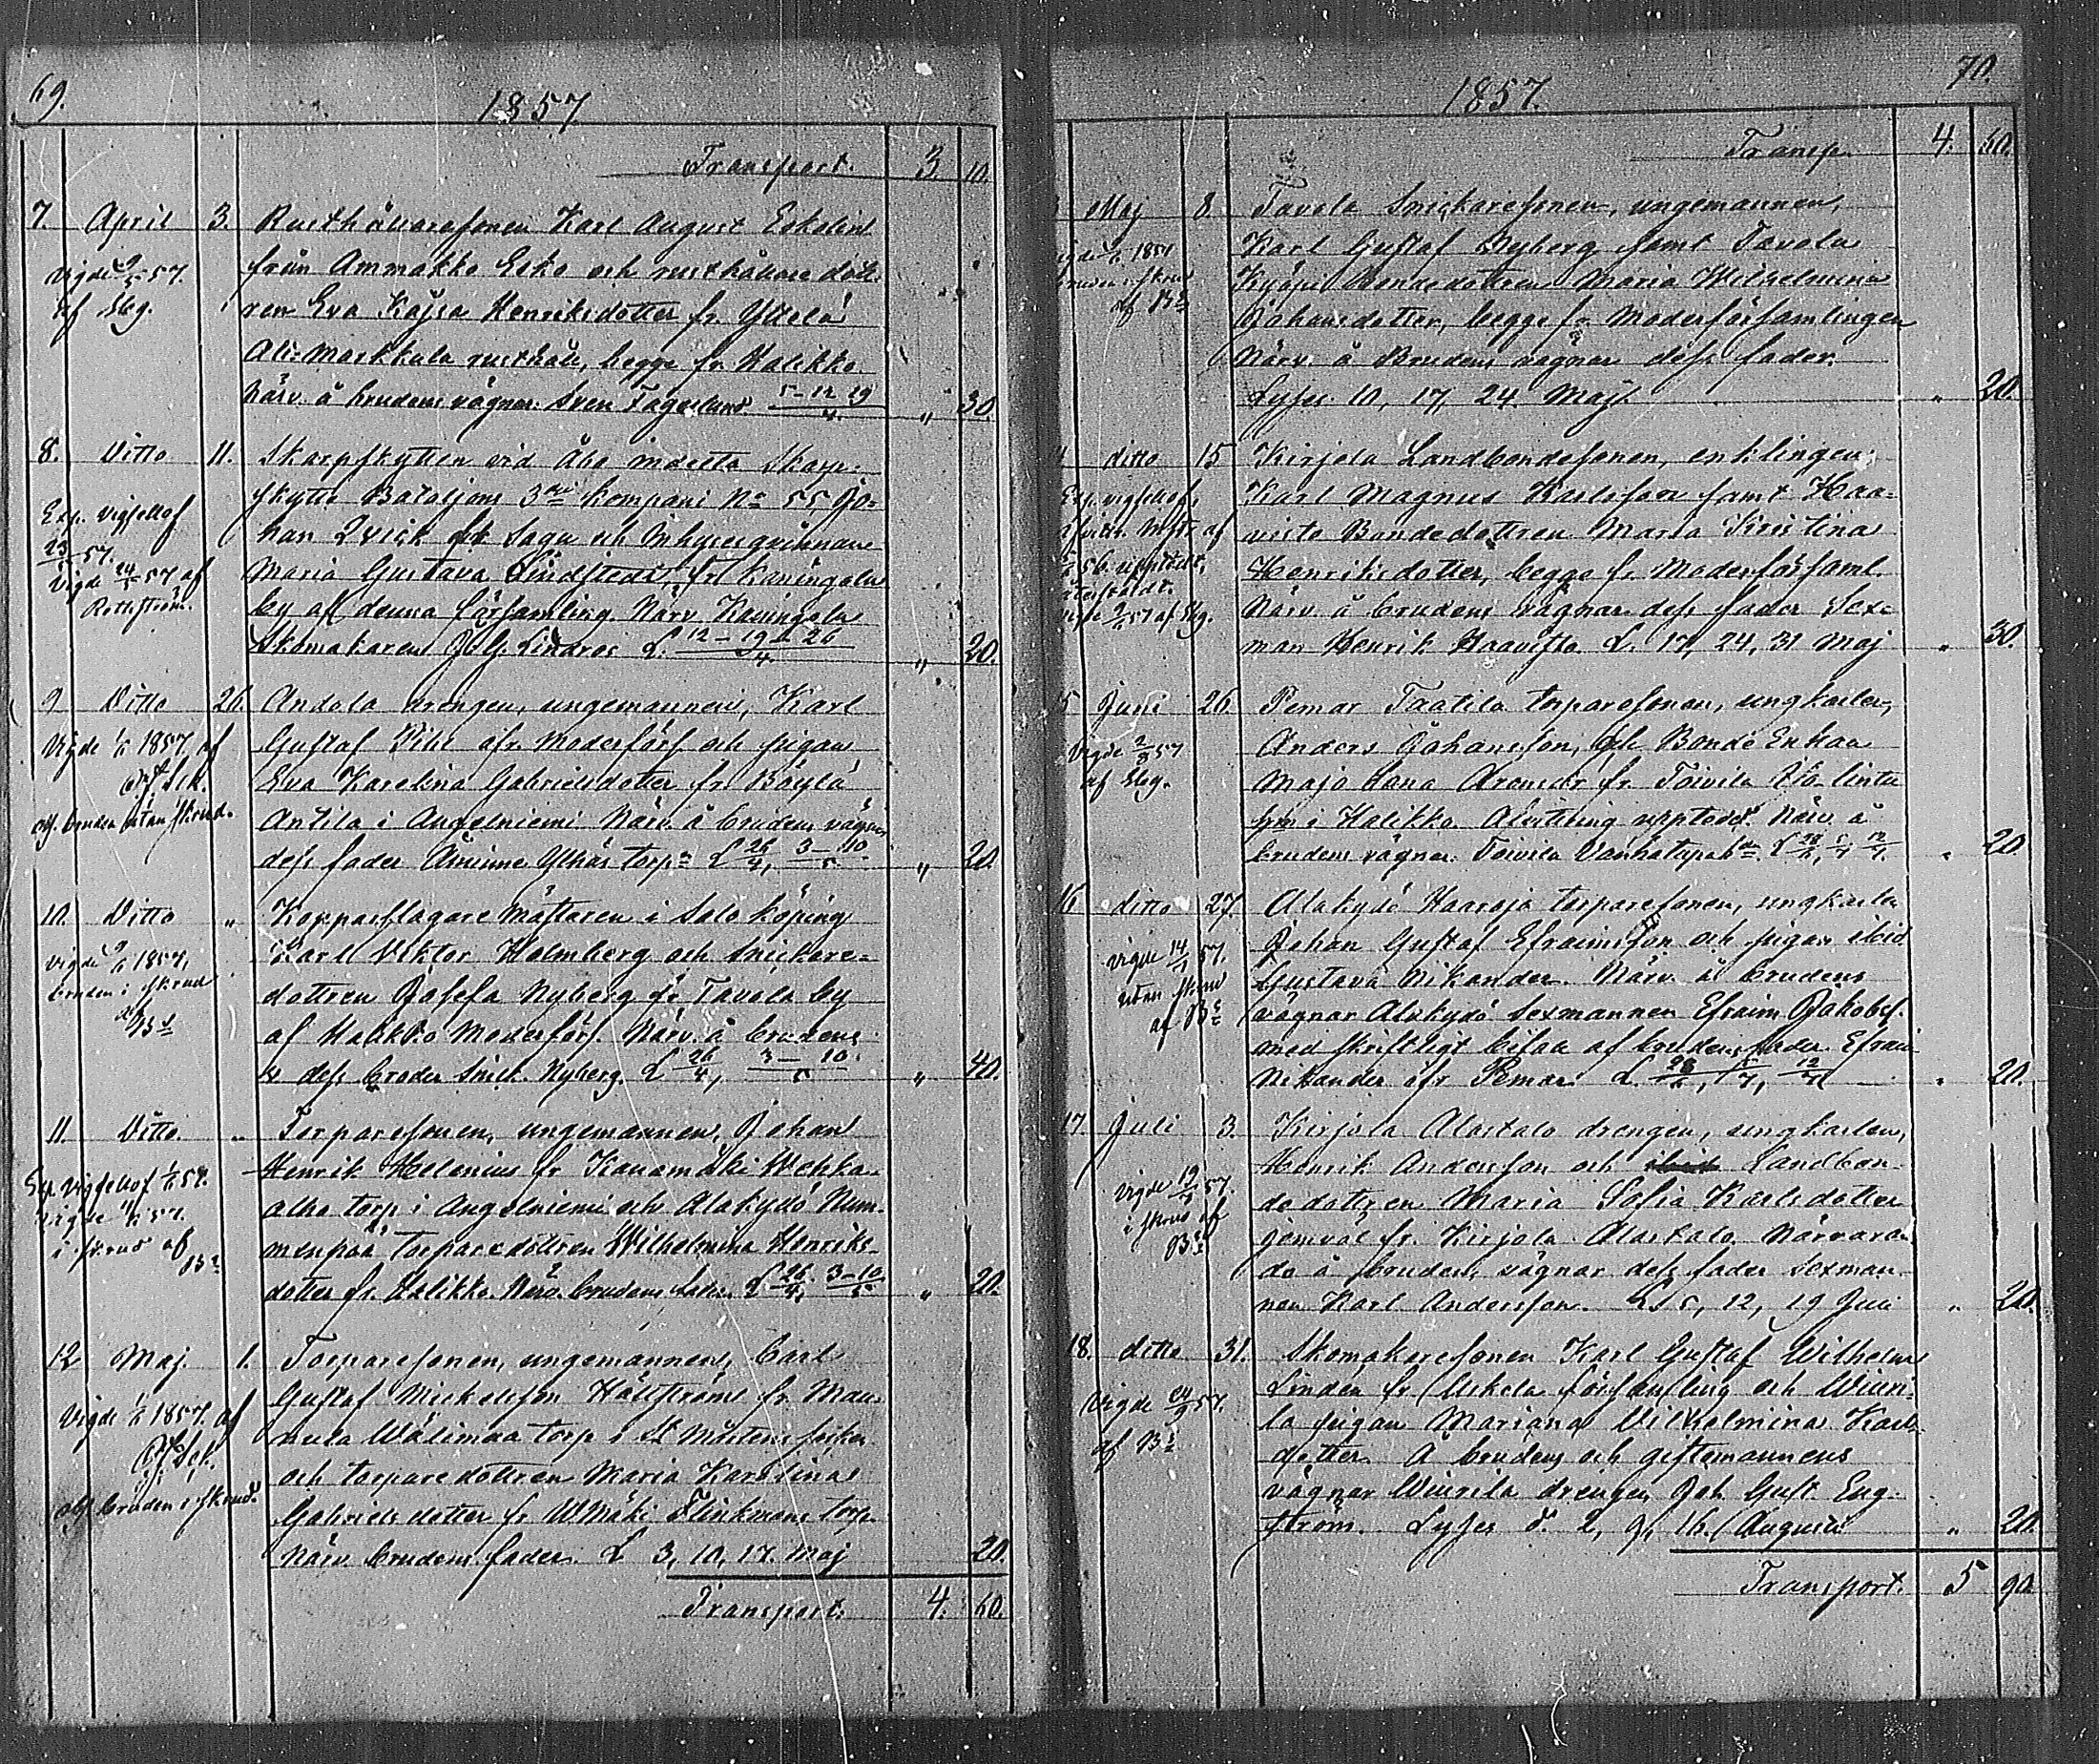 69.
1857
Transport. 3. 10.
7. April 3. Rusthållaresonen Karl August Eskelin
från Ammakko Esko och rusthållare dott
ren Eva Kajsa Henriksdotter fr. Yttelä
Ali-Markkula rusthåll, begge fr. Halikko.
Närv. å brudens vägnar Sven Fagerlund. 5-12 19/4. „ 30.
vigde 57.
af Sbg.
8. Ditto 11. Skarpskytten vid Åbo indelta Skarp-
skytte Bataljons 3dje kompani No 55 Jo-
han Qvick fr. Sagu och Inhysesqvinnan
Maria Gustava Lindstedt, fr. Kaningola
by af denna församling. Närv. Kaningola
Skomakaren J. G. Lindroos L. 12-19-26/4. „ 20.
Exp. vigselLof
23/ 57.
Vigde 24/ 57 af
9 Ditto 26. Andola drengen, ungemannen, Karl
Gustaf Pihl ifr. Moderförs och pigan
Eva Karolina Gabrielsdotter fr. Böylä
Antila i Angelniemi Närv. å brudens vägnar
dess fader Ylhäs torp. L 26/4, 3-10/5. „ 20.
Vigde 1857 af
obs. bruden utan skrud.
10. Ditto „ Kopparslagare mästaren i Salo köping
Karl Viktor Holmberg och snickare-
dottren Josefa Nyberg fr. Tavola by
af Halikko Moderförs. Närv. å brudens
v dess broder Snick. Nyberg. L 26/4, 3-10/5. „ 40.
vigde 1857,
bruden i skrud
af Bg
11. Ditto. „ Torparesonen, ungemannen, Johan
Henrik Helenius fr. Kanamäki Wehka-
alho torp i Angelniemi och Alakydö Num-
menpää torparedottren Wilhelmina Henriks-
dotter fr. Halikko. Närv. brudens fader. L 26/4, 3-10/5 „ 20.
Exp. vigselLof 57.
vigde 57.
i skrud af
12 Maj. 1. Torparesonen, ungemannen, Carl
Gustaf Mickelsson Hällström fr. Mau-
nula Wälimaa torp i St Mårtens socken
och torpare dottren Maria Karolina
Gabrielsdotter fr. Wmäki Flinkmans torp.
Närv. brudens fader. L 3, 10, 17. Maj 20.
Vigde 1857 af
obs. bruden i skrud.
Transport. 4. 60.
70.
1857.
Transp. 4. 60.
Maj 8. Tavola Snickaresonen, ungemannen,
Karl Gustaf Nyberg samt Tavola
Bondedottren Maria Wilhelmina
Johansdotter, begge fr. Moderförsamlingen
Närv. å Brudens vägnar dess fader.
Lyses 10, 17, 24. Maj. „ 20.
1857
bruden i skrud
ditto 15 Kirjola Landbondesonen, enklingen
Karl Magnus Karlsson samt Haa-
visto Bondedottren Maria Kristina
Henriksdotter, begge fr. Moderförsaml.
Närv. å brudens vägnar dess fader Sex-
man Henrik Haavisto L. 17, 24, 31 Maj „ 30.
Exp. vigselLof,
af Sbg.
Juni 26. Pemar Taatila torparesonen, ungkarlen,
Anders Johansson, och Bonde Enkan
Maja Lena fr. Toivila
by i Halikko. Afvittring upptedd. Närv. å
brudens vägnar. Toivila L 28/6, 5/7 12/7. „ 20.
Vigde 2/8 57
af Sbg.
16 ditto 27. Alakydö Haaroja torparesonen, ungkarlen
Johan Gustaf Efraimsson och pigan ibid
Gustava Nikander. Närv. å brudens
vägnar Alakydö sexmannen Efraim Jakobss.
med skriftligt bifall af brudens fader Efraim
Nikander ifr Pemar. L. 28/6, 5/7, 12/7 „ 20.
vigde 14/ 57.
utan skrud
af Bg
17. Juli 3. Kirjola Alastalo drengen, ungkarlen,
Henrik Andersson och ibid Landbon-
dedottren Maria Sofia Karlsdotter
jemväl fr. Kirjola Alastalo. Närvaran-
de å brudens vägnar dess fader sexman-
nen Karl Andersson. L 5, 12, 19 Juli „ 20.
vigde 19/ 57.
i skrud af
18. ditto 31. Skomakaresonen Karl Gustaf Wilhelm
Linden fr. Uskela församling och Wiuri-
la pigan Mariana Vilhelmina Karls-
dotter. Å brudens och giftomannens
vägnar Wiurila drengen Joh. Gust. Eng-
ström. Lyses d. 2, 9, 16. Augusti „ 20.
Vigde 24/9 57.
af
Transport. 5 90